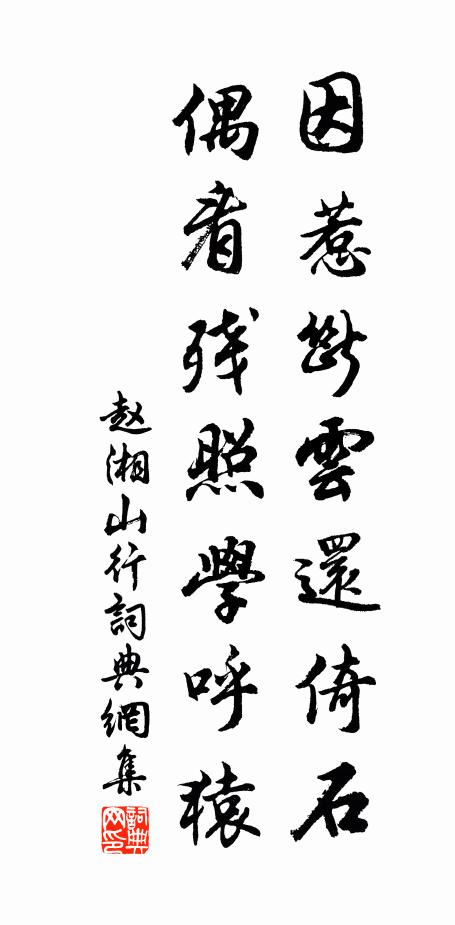 因惹斷雲還倚石
偶看残照學呼猿
赵湘山行詞典網集
詞典网印